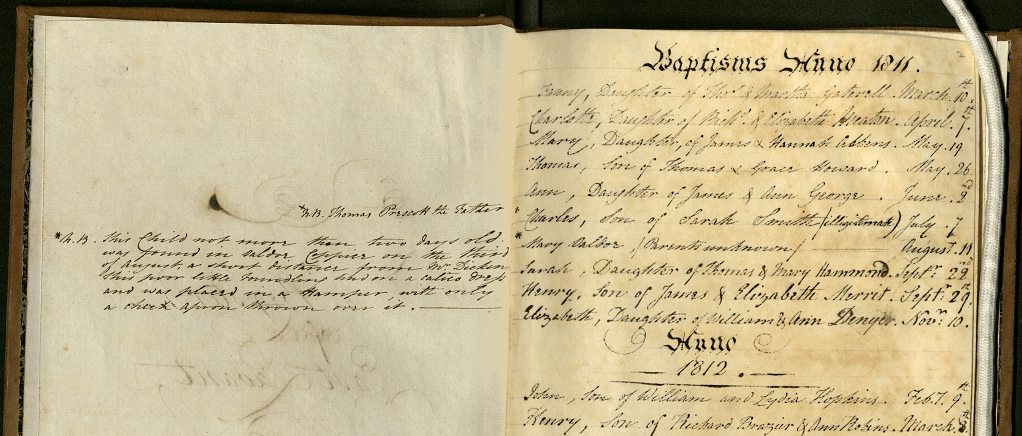 *N.B. Thomas Prescott the Father
*N.B. This Child not more than two days old
was found in Valdor Coppice on the third
of August, a short distance from Mr.
this poor little had on a calico dress
and was placed in a Hamper, with only
a check apron thrown over it.
Baptisms Anno 1811.
Fanny, Daughter of Thos. & Martha Gaterell. March. 10.th
Charlotte, Daughter of Richd. & Elizabeth Heaton. April. 7.th
Mary, Daughter, of James & Hannah Ebbens. May. 19
Thomas, Son of Thomas & Grace Howard. May. 26
Ann, Daughter of James & Ann George. June. 2.nd
* Charles, Son of Sarah Smith (illigitimate) July. 7
* Mary Valdor (Parents unknown) August. 11
Sarah, Daughter of Thomas & Mary Hammond. Septr. 22.nd
Henry, Son of James & Elizabeth Merrit. Septr. 29.th
Elizabeth, Daughter of William & Ann Denyer. Novr. 10.
Anno
1812.
John, Son of William and Lydia Hopkins. Feb.y. 9.th
Henry, Son of Richard Brazier & Ann Robins. March. 8.th